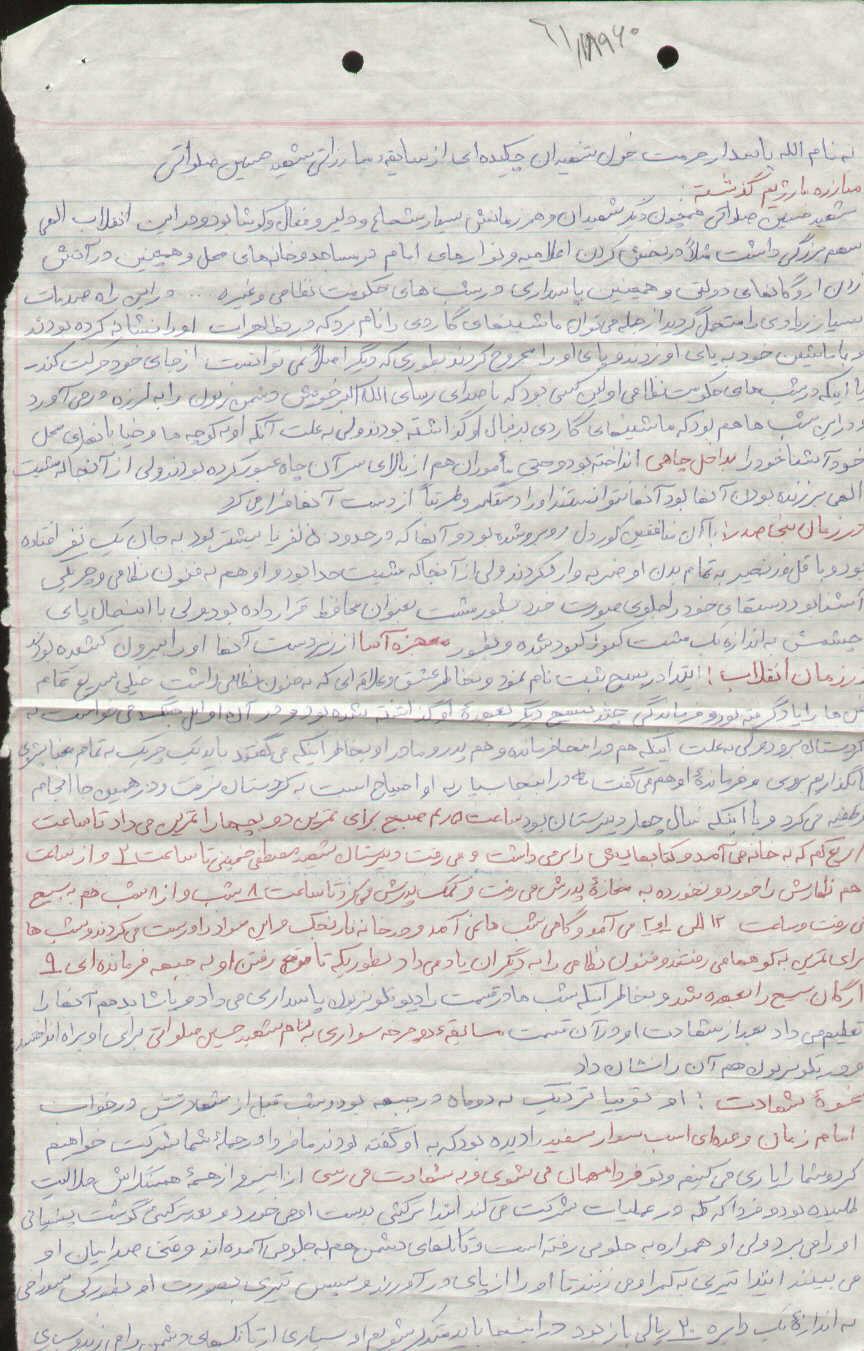 ۶۱/۱۱۸۹۶۰
به نام الله پاسدار حرمت خون شهیدان چکیده‌ای از سابقه مبارزاتی شهید حسین صلواتی
مبارزه با رژیم گذشته:
شهید حسین صلواتی همچون دیگر شهیدان و همرزمانش بسیار شجاع و دلیر و فعال و کوشا بود و در این انقلاب الهی
سهم بزرگی داشت مثلاً در پخش کردن اعلامیه و نوارهای امام در مساجد و خانه‌های محل و همچنین در آتش
زدن ارگانهای دولتی و همچنین پاسداری در شب های حکومت نظامی و غیره ... در این راه صدمات
بسیار زیادی را متحمل گردید از جمله می‌توان ماشینهای گاردی را نام برد که در تظاهرات او را نشانه کرده بودند
و با ماشین خود به پای او زدند و پای او را مجروح کردند بطوری که دیگر اصلاً نمی توانست از جای خود حرکت کند
با اینکه در شب های حکومت نظامی اولین کسی بود که با صدای رسای الله اکبر خویش دشمن زبون را به لرزه در می آورد
و در این شب ها هم بود که ماشینهای گاردی بدنبال او گذاشته بودند ولی به علت آنکه او به کوچه ها و خیابانهای محل
خود آشنا خود را بداخل چاهی انداخته بود و حتی مأموران هم از بالای سر آن چاه عبور کرده بودند ولی از آنجا که مشیت
الهی بر زنده بودن آنها بود آنها نتوانستند او را دستگیر و ظریفاً از دست آنها فرار می کرد
در زمان بنی صدر: با آن منافقین کوردل روبرو شده بود و آنها که در حدود ۵ نفر یا بیشتر بود به جان یک نفر افتاده
بود و با قفل و زنجیر به تمام بدن او ضربه وارد کردند ولی از آنجا که مشیت خدا بود و او هم به فنون نظامی و چریکی
آشنا بود دستهای خود را جلوی صورت خود بطور مشت بعنوان محافظ قرار داده بود ولی با این حال پای
چشمش به اندازه یک مشت کبود شده و بطور معجزه آسا از زیر دست آنها او را بیرون کشیده بودند
در زمان انقلاب: ابتدا در بسیج ثبت نام نمود و بخاطر عشق و علاقه ای که به فنون نظامی داشت خیلی سریع تمام
فن ها را یاد گرفته بود و فرماندگی چند بسیج دیگر بعهدهٔ او گذاشته شده بود و در آن اوایل جنگ می خواست به
کردستان برود ولی به علت اینکه هم در اینجا فرمانده و هم پدر و مادر او بخاطر اینکه می گفتند باید
نگذاریم بروی و فرماندهٔ او هم می گفت که در اینجا بسیار به او احتیاج است به کردستان نرفت و در همین جا انجام
وظیفه می کرد و با اینکه سال چهار دبیرستان بود ساعت ۴/۵ صبح برای تمرین دو بچه‌ها را تمرین می داد تا ساعت
ربع کم که به خانه می آمد و کتابهایش را برمی داشت و می رفت دبیرستان شهید مصطفی خمینی تا ساعت ۲ و از ساعت
هم ناهارش را خورده و نخورده به مغازهٔ پدرش می رفت و کمک پدرش می کرد تا ساعت ۸ شب و از ۸ شب هم به بسیج
می رفت و ساعت ۱۲ الی ۱ و ۲ می آمد و گاهی شب ها نمی آمد و در خانه نارنجک و این مواد را درست می کردند و شب ها
برای تمرین به کوهها می رفتند و فنون نظامی را به دیگران یاد می داد بطوریکه تا موقع رفتن او به جبهه فرمانده ای ۹
ارگان بسیج را بعهده شد و بخاطر اینکه شب ها در قسمت رادیو تلویزیون پاسداری می داد و پاشا بدهم آنها را
تعلیم می داد بعد از شهادت او در آن قسمت مسابقهٔ دوچرخه سواری به نام شهید حسین صلواتی برای او براه انداختند
و در تلویزیون هم آن را نشان داد
نحوهٔ شهادت: او تقریباً نزدیک به دو ماه در جبهه بود و شب قبل از شهادتش در خواب
امام زمان و عده‌ای اسب سوار سفید را دیده بود که به او گفته بودند ما فردا در حملهٔ شما شرکت خواهیم
کرد و شما را یاری می کنیم و تو فردا مهمان می شوی و به شهادت می رسی از اینرو از همهٔ همسنگرانش حلالیت
طلبیده بود و فردا که در عملیات شرکت می کند ابتدا ترکشی بدست او می خورد و بعد ترکشی گوشت پیشانی
او را می برد ولی او همواره به جلو می رفته است و تانکهای دشمن هم به جلو می آمده اند وقتی صدامیان او
می بینند ابتدا تیری به کمر او می زنند تا او را از پای درآورند و سپس تیری بصورت او بطوریکه سوراخی
به اندازهٔ یک دایره ۲۰ ریالی باز بود در اینجا باید متذکر شویم او بسیاری از تانکهای دشمن را می زند و بسیاری